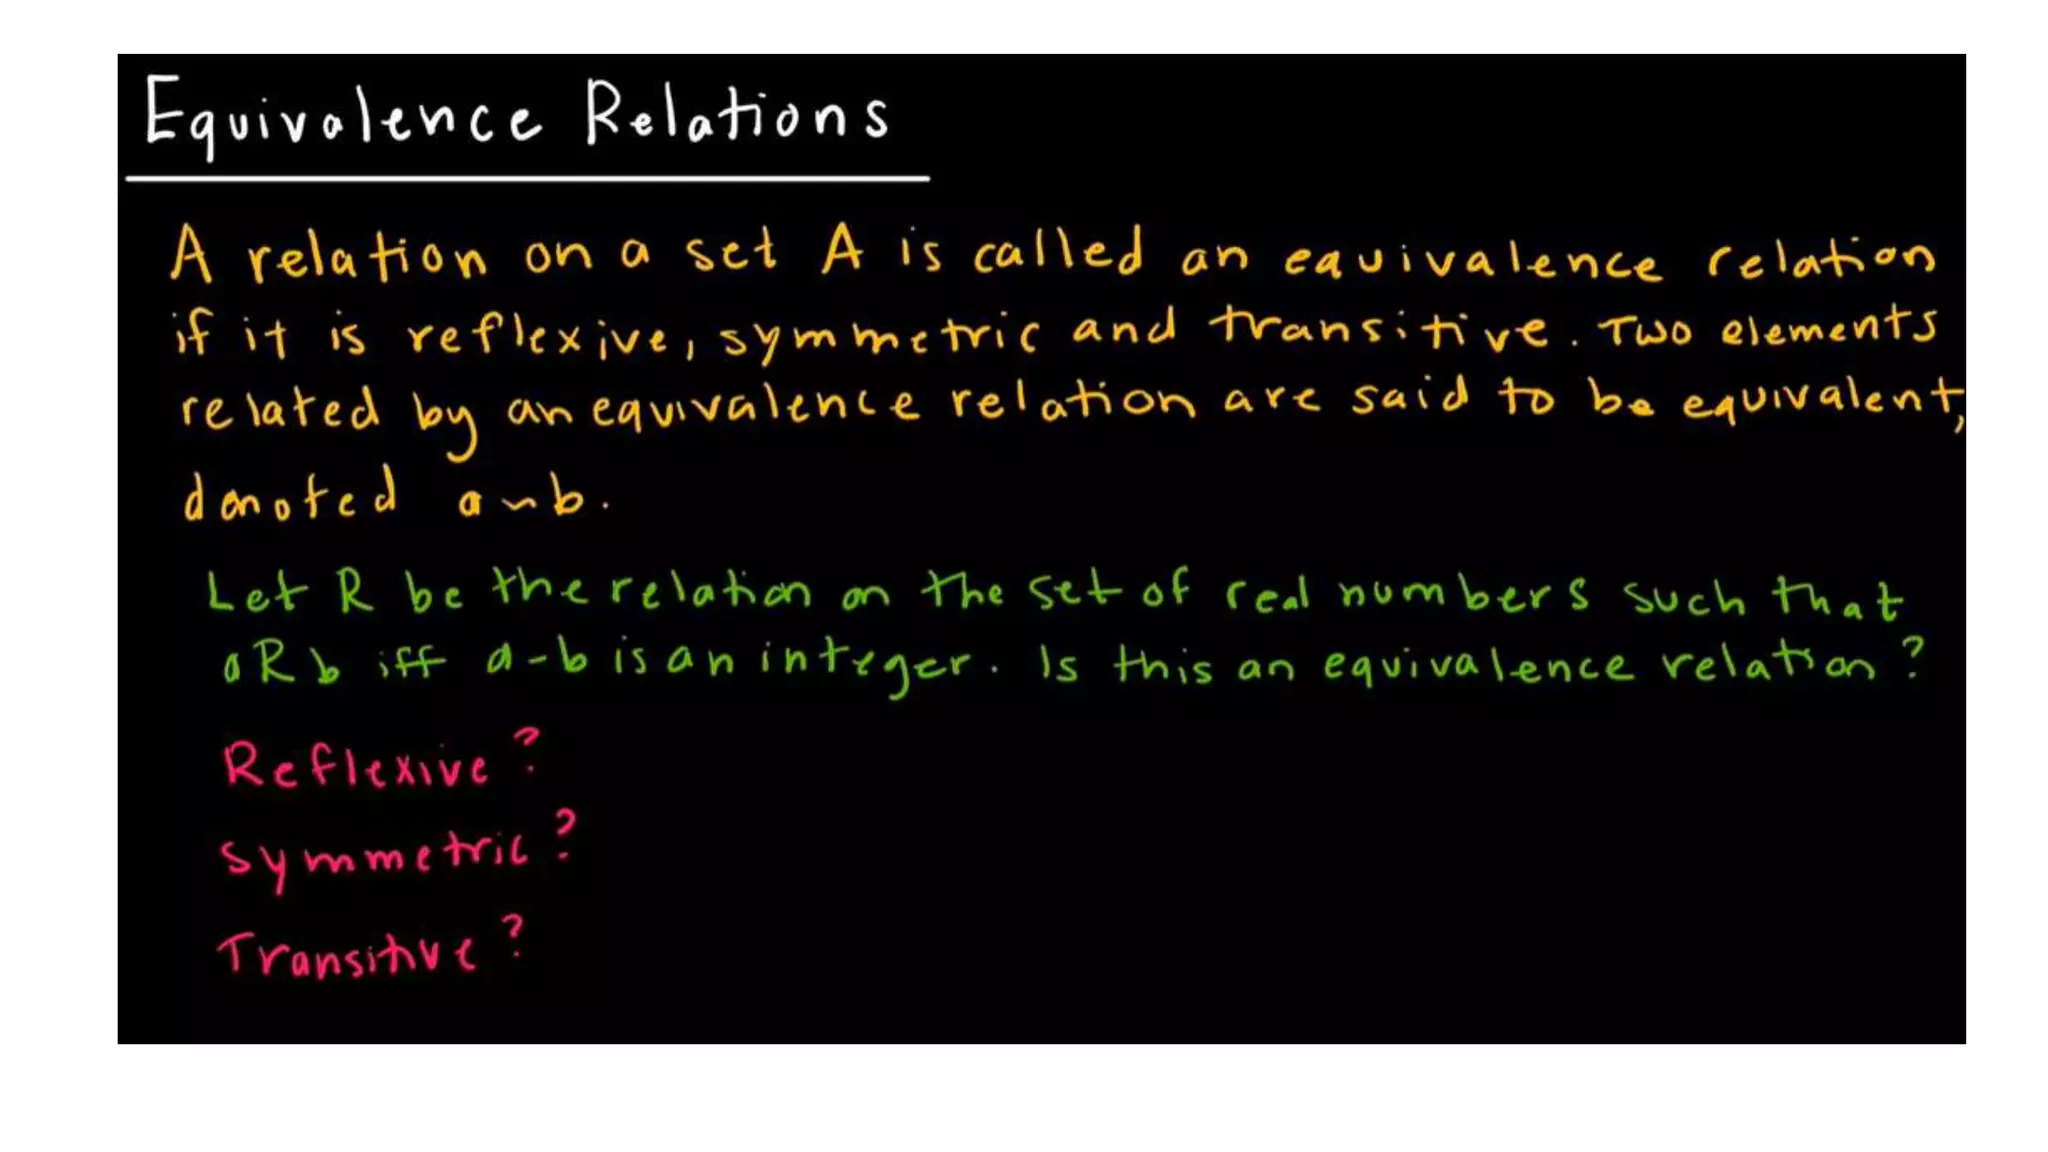 Equivalence Relations
A relation on a set A is called an equivalence relation
if it is reflexive, symmetric and transitive. Two elements
related by an equivalence relation are said to be equivalent,
denoted a ~ b.
Let R be the relation on the set of real numbers such that
aRb iff a-b is an integer. Is this an equivalence relation?
Reflexive?
Symmetric?
Transitive?